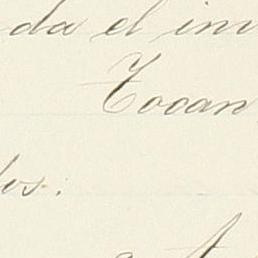 da el im
Tocan
los.